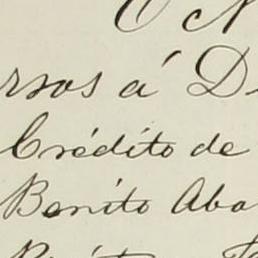 O N
rsos á D
Crédito de
Benito Aba